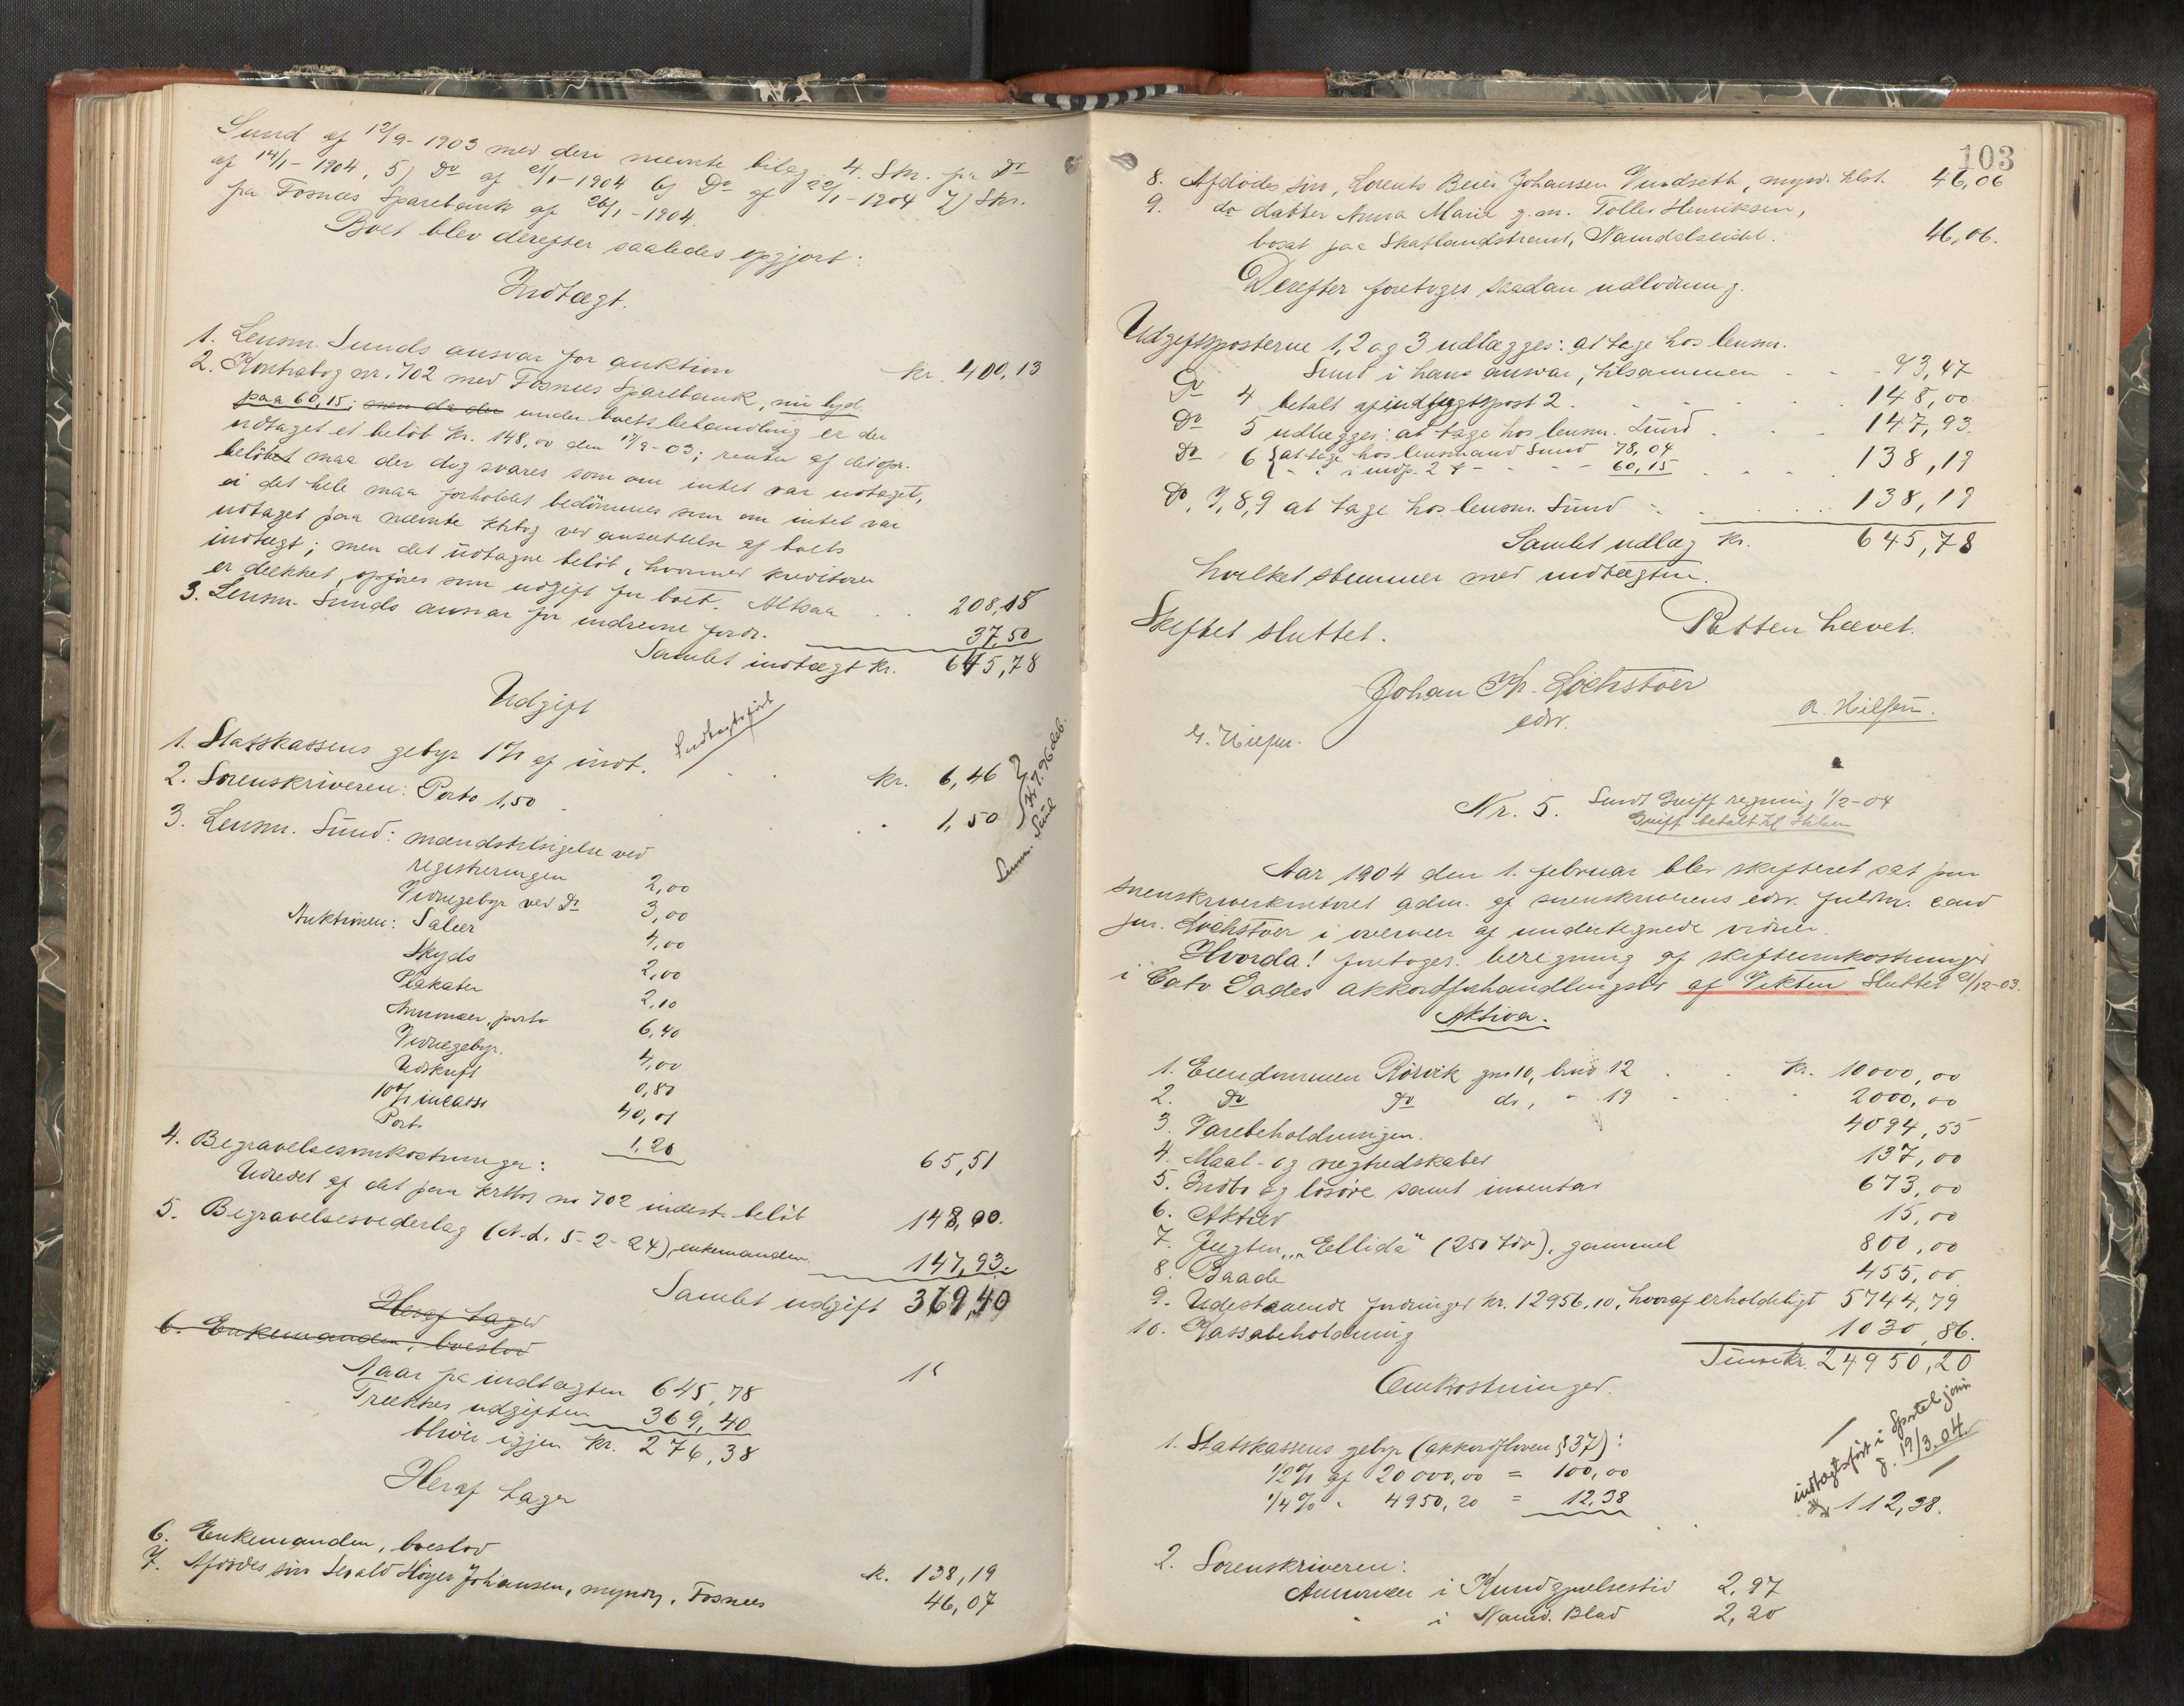 Sund af 12/9-1903 med deri nævnte bilag 4. Skr. fra Do
af 14/1-1904, 5) Do af 21/1-1904 6) Do af 22/1-1904 7) Skr.
fra Fosnes Sparebank af 26/1-1904.
Boet blev derefter saaledes opgjort:
Indtægt.
1. Lensm. Sunds ansvar for auktion kr. 400,13
2. Kontrabog nr. 702 med Fosnes Sparebank, nu lyd.
paa 60,15; men da der under boets behandling er der
udtaget et beløb kr. 148,00 den 12/9-03; renter af det opr.
beløbet maa der dog svares som om intet var udtaget,
i det hele maa forholdet bedømmes som om intet var
udtaget paa nævnte ktrbog ved ansættelse af boets
indtægt; men det udtagne beløb, hvormed kreditorer
er dækket, opføres som udgift for boet. Altsaa 208,15
3. Lensm. Sunds ansvar for inddrevne fordr. 37,50
Samlet indtægt kr. 645,78
Udgift
Indtægtsført
1. Statskassens gebyr 1% af indt. kr. 6,46
2. Sorenskriveren: Porto 1,50 1,50
47.96 deb.
Lensm. Sund
3. Lensm. Sund: mandstilsigelse ved
registreringen 2,00
Vidnegebyr ved Do 3,00
Auktionen: Salær 4,00
Skyds 2,00
Plakater 2,10
Annoncer, porto 6,40
Vidnegebyr. 4,00
Udskrift 0,80
10% incasso 40,01
Porto 1,20 65,51
4. Begravelsesomkostninger:
Udredet af det paa krtbog no 702 indest. beløb 148,00.
5. Begravelsesvederlag (N.L. 5-2-24), enkemanden 147,93.
Samlet udgift 369,40
Heraf tager
6. Enkemanden, boeslod
Naar fra indtægten 645,78
Trækkes udgiften 369,40
bliver igjen kr. 276,38
Heraf tager
6. Enkemanden, boeslod k. 138,19
7. Afdødes søn Sevald Høyer Johansen, myndig, Fosnes 46,07
103
8. Afdødes søn, Lorents Beier Johansen Vindseth, mynd. tilst. 46,06
9. do datter Anna Marie g.m. Tolles Henriksen,
bosat paa Skatlandstrand, Namdalseidet. 46,06.
Derefter foretoges saadan udlodning.
Udgiftsposterne 1, 2 og 3 udlægges: at tage hos lensm.
Sund i hans ansvar, tilsammen 73,47
Do 4 betalt af indtægtspost 2. 148,00
Do 5 udlægges: at tage hos lensm. Sund 147,93
Do 6 { at tage hos lensmand Sund 78,04
" " i indp. 2 60,15 138,19
Do, 7, 8, 9 at tage hos lensm. Sund 138,19
Samlet udlæg kr. 645,78
hvilket stemmer med indtægten.
Skiftet sluttet. Retten hævet.
Johan Kr. Lochstøer
edsv.
A. Hilsen.
Nr. 5. Sendt Greiff regning 1/2-04
Greiff betalt til
Aar 1904 den 1. februar blev skifteret sat paa
sorenskriverkontoret adm. af sorenskriverens edsv. fuldm. cand
jur. Lochstøer i overvær af undertegnede vidner.
Hvorda! foretoges beregning af skifteomkostninger
i Cato Lades akkordforhandlingsbo af Vikten Sluttet 21/12-03.
Aktiva.
1. Eiendommen Rørvik gno 10, bno 12 kr. 10000,00
2. Do Do do, " 19 2000,00
3. Varebeholdningen. 4094,55
4. Maal- og vægtredskaber 137,00
5. Indbo og løsøre samt inventar 673,00
6. Aktier 15,00
7. Jægten "Ellida" (250 tdr), gammel 800,00
8. Baade 455,00
9. Udestaaende fordringer kr. 12956,10, hvoraf erholdeligt 5744,79
10. Kassabeholdning 1030,86.
Sum kr. 24950,20
Omkostninger.
1. Statskassens gebyr (akkordloven § 37):
1/2% af 20000,00 = 100,00
1/4% " 4950,20 = 12,38 112,38.
indtægtsført i Sportel jour
d. 19/3.04.
2. Sorenskriveren:
Annoncer i Kundgjørelsestid 2,97
" i Namd. Blad 2,20